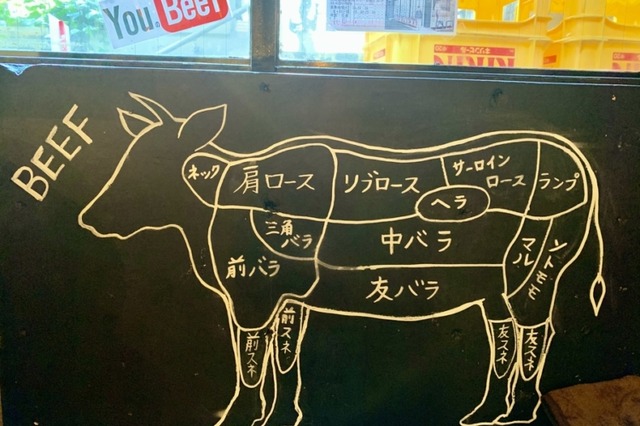 You.Beef
BEEF
ネック
肩ロース
リブロース
サーロイン
ロース
ランプ
ヘラ
三角
バラ
中バラ
マル
ソトモモ
前バラ
友バラ
前スネ
前スネ
友スネ
友スネ